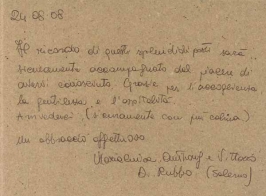 24.08.08
Il ricordo di questi splendidi posti sarà
sicuramente accompagnato dal piacere di
avervi conosciuto. Grazie per l'accoglienza
la gentilezza e l'ospitalità.
Arrivederci (sicuramente con più calma)
un abbraccio affettuoso
Anthony e
Di Rubbo (Salerno)